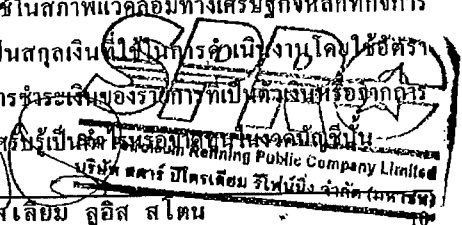 ใช้ในสภาพแวดล้อมทางเศรษฐกิจหลักที่กิจการ
เป็นสกุลเงินที่ใช้ในการดำเนินงานโดยใช้อัตรา
การชำระเงินของรายการที่เป็นตัวเงินหรือจากการ
รับรู้เป็นกำไรหรือขาดทุนในงวดบัญชีนั้น
SPRC
Petroleum Refining Public Company Limited
บริษัท สตาร์ ปิโตรเลียม รีไฟน์นิ่ง จำกัด (มหาชน)
เลียม ลูอิส สโตน